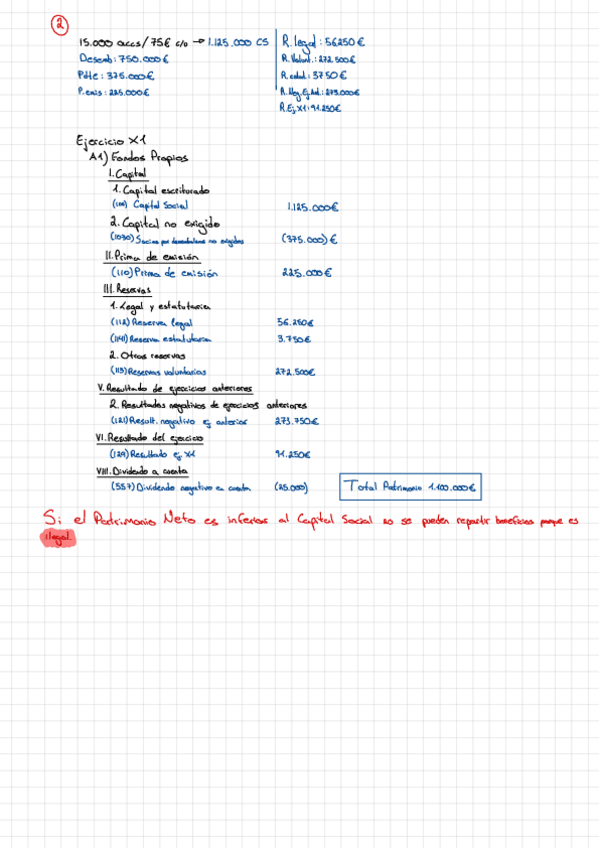 2
15.000 accs/75€ c/u → 1.125.000 CS
Desemb: 750.000€
Pdte: 375.000€
P.emis: 225.000€
R.legal: 56250€
R.Volunt.: 272.500€
R.estat: 3750€
R.Neg.Ej.Ant.: 273.000€
R.Ej.X1: 91.250€
Ejercicio X1
A1) Fondos Propios
I. Capital
1. Capital escriturado
(100) Capital Social 1.125.000€
2. Capital no exigido
(1030) Socios por desembolsos no exigidos (375.000)€
II. Prima de emisión
(110) Prima de emisión 225.000€
III. Reservas
1. Legal y estatutaria
(112) Reserva legal 56.250€
(1141) Reserva estatutaria 3.750€
2. Otras reservas
(113) Reservas voluntarias 272.500€
V. Resultado de ejercicios anteriores
2. Resultados negativos de ejercicios anteriores
(121) Result. negativo ej anterior 273.750€
VI. Resultado del ejercicio
(129) Resultado ej. X1 91.250€
VIII. Dividendo a cuenta
(557) Dividendo negativo a cuenta (25.000)
Total Patrimonio 1.100.000€
Si el Patrimonio Neto es inferior al Capital Social no se pueden repartir beneficios porque es
ilegal.